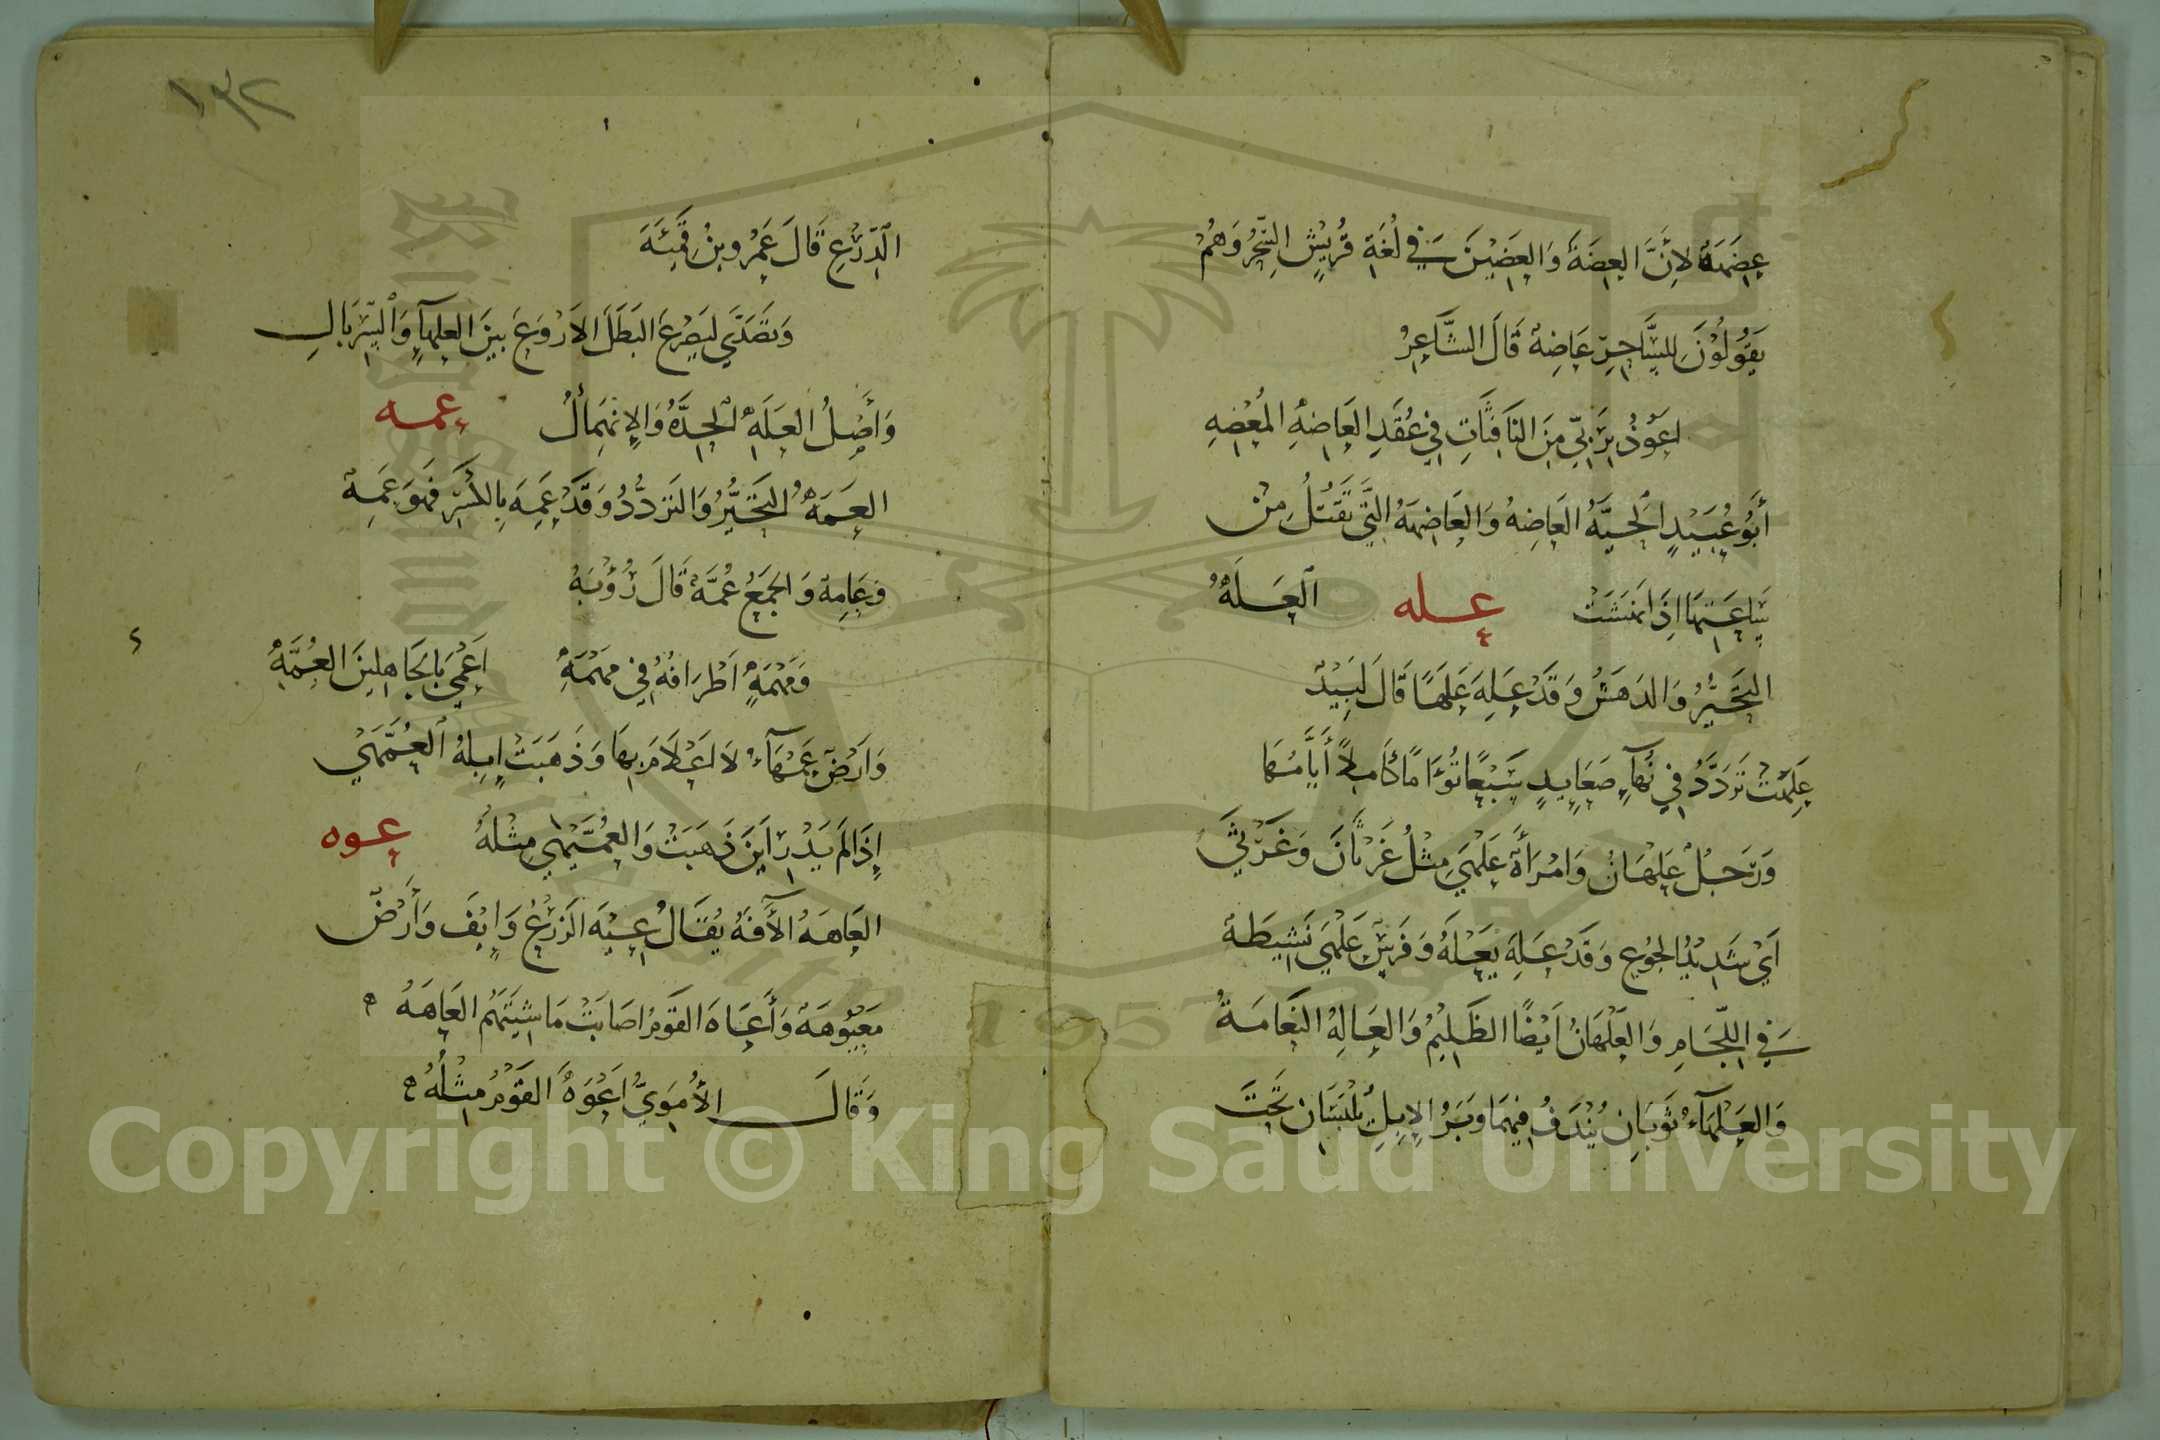 عِضَهَةٌ لِأَنَّ العِضَةَ وَالعِضِيْنَ فِي لُغَةِ قُرَيْشٍ السِّحْرُ وَهُمْ
يَقُولُوْنَ لِلسَّاحِرِ عَاضِهٌ قَالَ الشَّاعِرُ
اَعُوْذُ بِرَبِّي مِنَ النَّافِثَاتِ فِي عُقَدِ العَاضِهِ المُعْضِهِ
أَبُو عُبَيْدٍ الحَيَّةُ العَاضِهُ وَالعَاضِهَةُ الَّتِي تَقْتُلُ مِنْ
سَاعَتِهَا اِذَا نَهَشَتْ عله العَلَهُ
التَّحَيُّرُ وَالدَهَشُ وَقَدْ عَلِهَ عَلَهًا قَالَ لَبِيْدٌ
عَلِهَتْ تَرَدَّدُ فِي نُهَآءِ صَعَايِدٍ سَبْعًا تُؤَامًا كَامِلًا أَيَّامُهَا
وَرَجُلٌ عَلْهَانُ وَامْرَأَةٌ عَلْهَى مِثْلُ غَرْثَانَ وَغَرْثَى
اَيْ شَدِيْدُ الجُوْعِ وَقَدْ عَلِهَ يَعْلَهُ وَفَرَسٌ عَلْهَى نَشِيطَةٌ
فِي اللِّجَامِ وَالعَلْهَانُ اَيْضًا الظَلِيْمُ وَالعَالِهُ النَّعَامَةُ
وَالعَلْهَآءُ ثَوْبَانِ يُنْدَفُ فِيْهِمَا وَبَرُ الإِبِلِ يُلْبَسَانِ تَحْتَ
١٣٢
الدِّرْعِ قَالَ عَمْرُو بْنُ قَمِيْئَةَ
وَتَصَدَّى لِيَصْرَعَ البَطَلَ الاَرْوَعَ بَيْنَ العَلْهَآءِ وَالسِّرْبَالِ
وَأَصْلُ العَلَهِ الحِدَّةُ وَالاِنْهِمَاكُ عمه
العَمَهُ التَّحَيُّرُ وَالتَرَدُّدُ وَقَدْ عَمِهَ بِالكَسْرِ فَهُوَ عَمِهٌ
وَعَامِهٌ وَالجَمْعُ عُمَّهٌ قَالَ رُؤْبَةُ
وَمَهْمَهٍ اَطْرَافُهُ فِي مَهْمَهِ اَعْمَى بِالجَاهِلِيْنَ العُمَّهِ
وَاَرْضٌ عَمْهَآءُ لَا اَعْلَامَ بِهَا وَذَهَبَتْ اِبِلُهُ العُمَّهَيْ
إِذَا لَمْ يَدْرِ اَيْنَ ذَهَبَتْ وَالعُمَّيْهَى مِثْلُهُ عوه
العَاهَةُ الآفَةُ يُقَالُ عِيْهَ الزَرْعُ وَاِيْفَ وَأَرْضٌ
مَعْيُوْهَةٌ وَأَعَاهَ القَوْمُ اصَابَتْ مَاشِيَتَهُمُ العَاهَةُ ه
وَقَالَ الأُمَوِيُّ اَعْوَهَ القَوْمُ مِثْلُهُ ه